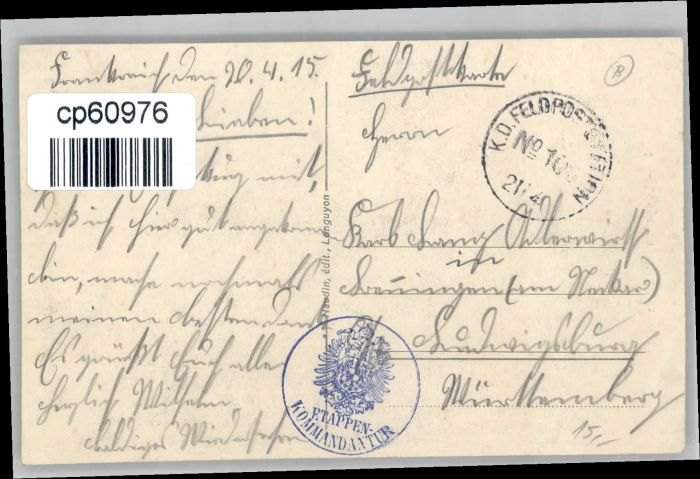 Frankreich den 20.4.15.
cp60976
Lieben!
mit,
daß ich hier gut angekom
ben, mache nochmals
meinen besten Dank
Es grüßt Euch alle
herzlich Wilhelm
baldiges Wiedersehen
Naudin, édit., Longuyon
Feldpostkarte
B
Herrn
K.D. FELDPOSTSTATION
No 10
21 4
Karl Lang Adlerwirt
in
(am Neckar)
Ludwigsburg
Württemberg
ETAPPEN-
KOMMANDANTUR
15,-